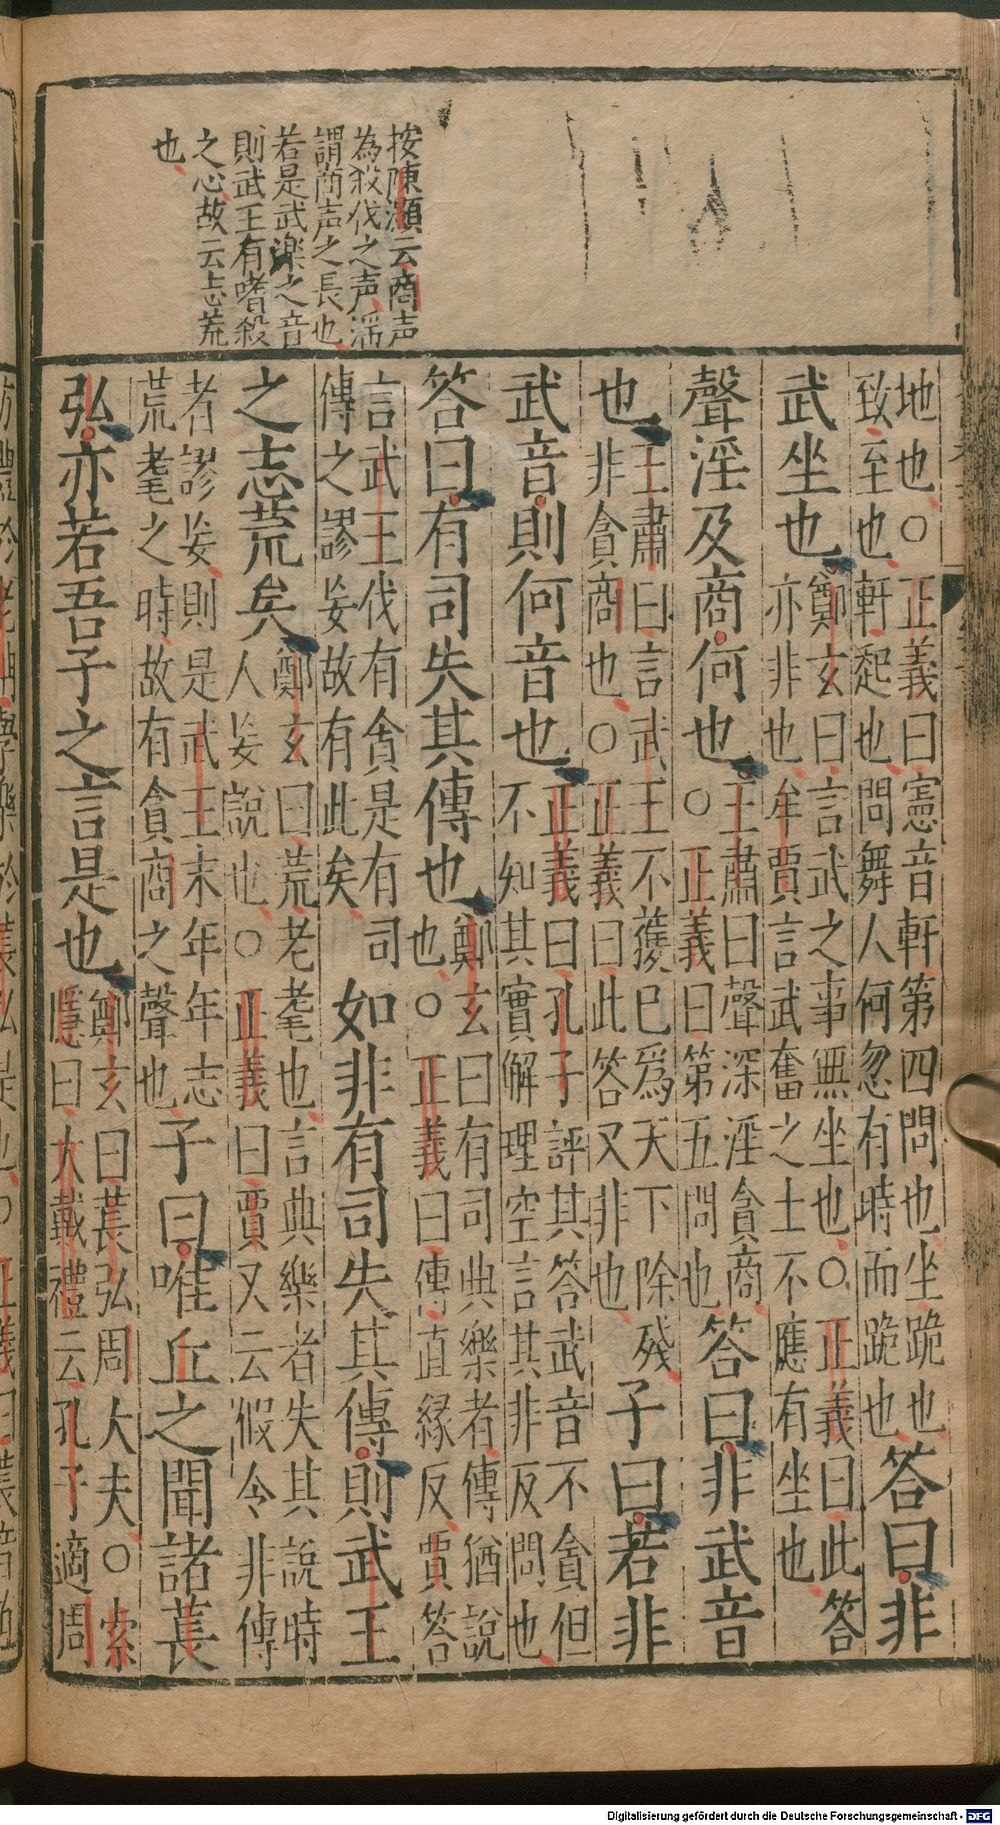 按陳灝云商声
為殺伐之声淫
謂商声之長也
若是武楽之音
則武王有嗜殺
之心故云志荒
也
地也○正義曰憲音軒第四問也坐跪也
致至也軒起也問舞人何忽有時而跪也
答曰非
武坐也
鄭玄曰言武之事無坐也○正義曰此答
亦非也牟賈言武奮之士不應有坐也
聲淫及商何也
王肅曰聲深淫貪商
○正義曰第五問也
答曰非武音
也
王肅曰言武王不獲已爲天下除殘
非貪商也○正義曰此答又非也
子曰若非
武音則何音也
正義曰孔子評其答武音不貪但
不知其實解理空言其非反問也
答曰有司失其傳也
鄭玄曰有司典樂者傳猶說
也○正義曰傳直緣反賈答
言武王伐有貪是有司
傳之謬妄故有此矣
如非有司失其傳則武王
之志荒矣
鄭玄曰荒老耄也言典樂者失其說時
人妄說也○正義曰賈又云假令非傳
者謬妄則是武王末年年志
荒耄之時故有貪商之聲也
子曰唯丘之聞諸萇
弘亦若吾子之言是也
鄭玄曰萇弘周大夫○索
隱曰大戴禮云孔子適周
Digitalisierung gefördert durch die Deutsche Forschungsgemeinschaft - DFG